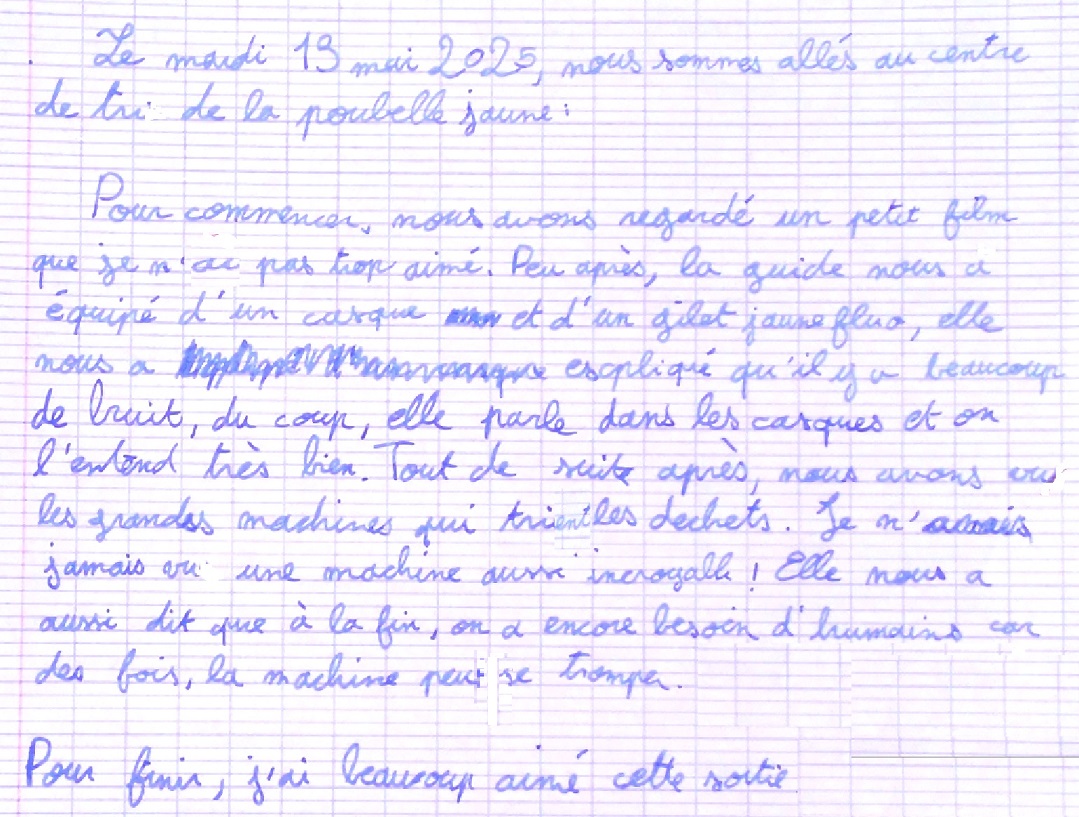 Le mardi 13 mai 2025, nous sommes allés au centre
de tri de la poubelle jaune :
Pour commencer, nous avons regardé un petit film
que je n'ai pas trop aimé. Peu après, la guide nous a
équipé d'un casque et d'un gilet jaune fluo, elle
nous a expliqué qu'il y a beaucoup
de bruit, du coup, elle parle dans les casques et on
l'entend très bien. Tout de suite après, nous avons vu
les grandes machines qui trient les dechets. Je n'avais
jamais vu une machine aussi incroyable ! Elle nous a
aussi dit que à la fin, on a encore besoin d'humains car
des fois, la machine peut se tromper.
Pour finir, j'ai beaucoup aimé cette sortie